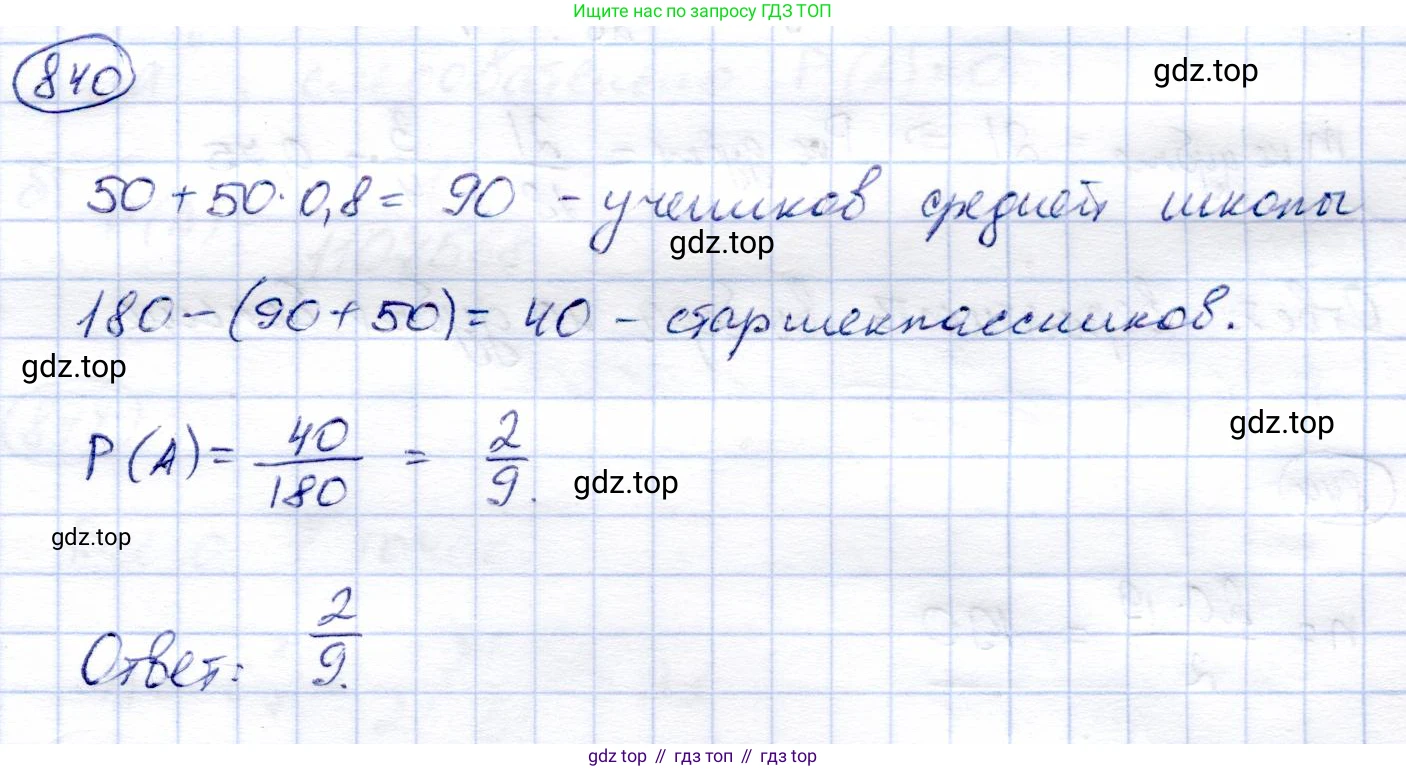 Ищите нас по запросу ГДЗ ТОП
840
gdz.top
50 + 50 · 0,8 = 90 - учеников средней школы
gdz.top
180 - (90 + 50) = 40 - старшеклассников.
gdz.top
gdz.top
P(A) = 40/180 = 2/9.
gdz.top
gdz.top
Ответ: 2/9.
gdz.top // гдз топ // гдз top